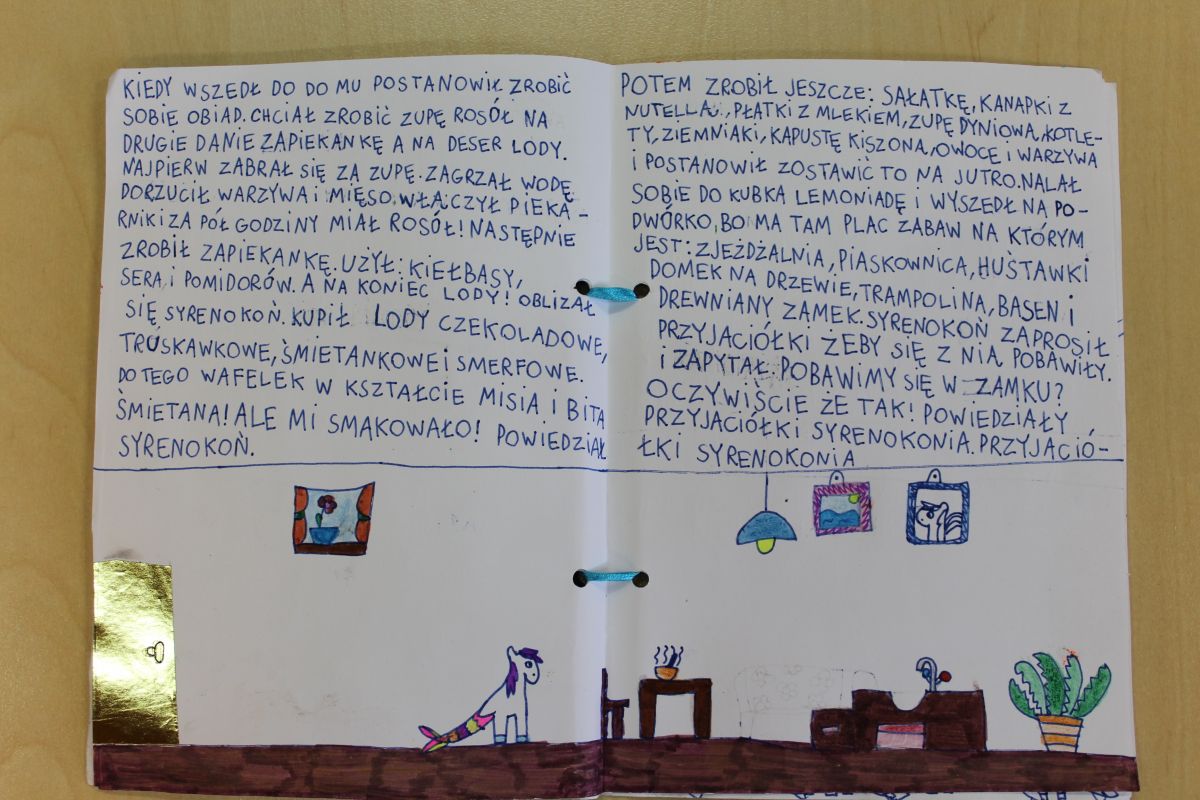 KIEDY WSZEDŁ DO DO MU POSTANOWIŁ ZROBIĆ
SOBIE OBIAD. CHCIAŁ ZROBIĆ ZUPĘ ROSÓŁ NA
DRUGIE DANIE ZAPIEKANKĘ A NA DESER LODY.
NAJPIERW ZABRAŁ SIĘ ZA ZUPĘ. ZAGRZAŁ WODĘ
DORZUCIŁ WARZYWA i MIĘSO, WŁĄCZYŁ PIEKA-
RNIK i ZA PÓŁ GODZINY MIAŁ ROSÓŁ! NASTĘPNIE
ZROBIŁ ZAPIEKANKĘ. UŻYŁ: KIEŁBASY,
SERA, i POMIDORÓW. A NA KONIEC LODY! OBLIZAŁ
SIĘ SYRENOKOŃ. KUPIŁ LODY CZEKOLADOWE,
TRUSKAWKOWE, ŚMIETANKOWE i SMERFOWE.
DO TEGO WAFELEK W KSZTAŁCIE MISIA i BITA
ŚMIETANA! ALE MI SMAKOWAŁO! POWIEDZIAŁ
SYRENOKOŃ.
POTEM ZROBIŁ JESZCZE: SAŁATKĘ, KANAPKI Z
NUTELLĄ, PŁATKI Z MLEKIEM, ZUPĘ DYNIOWĄ, KOTLE-
TY, ZIEMNIAKI, KAPUSTĘ KISZONĄ, OWOCE i WARZYWA
i POSTANOWIŁ ZOSTAWIĆ TO NA JUTRO. NALAŁ
SOBIE DO KUBKA LEMONIADĘ i WYSZEDŁ NA PO-
DWÓRKO, BO MA TAM PLAC ZABAW NA KTÓRYM
JEST: ZJEŻDŻALNIA, PIASKOWNICA, HUŚTAWKI
DOMEK NA DRZEWIE, TRAMPOLINA, BASEN i
DREWNIANY ZAMEK. SYRENOKOŃ ZAPROSIŁ
PRZYJACIÓŁKI ŻEBY SIĘ Z NIĄ POBAWIŁY.
i ZAPYTAŁ. POBAWIMY SIĘ W ZAMKU?
OCZYWIŚCIE ŻE TAK! POWIEDZIAŁY
PRZYJACIÓŁKI SYRENOKONIA. PRZYJACIÓ-
ŁKI SYRENOKONIA